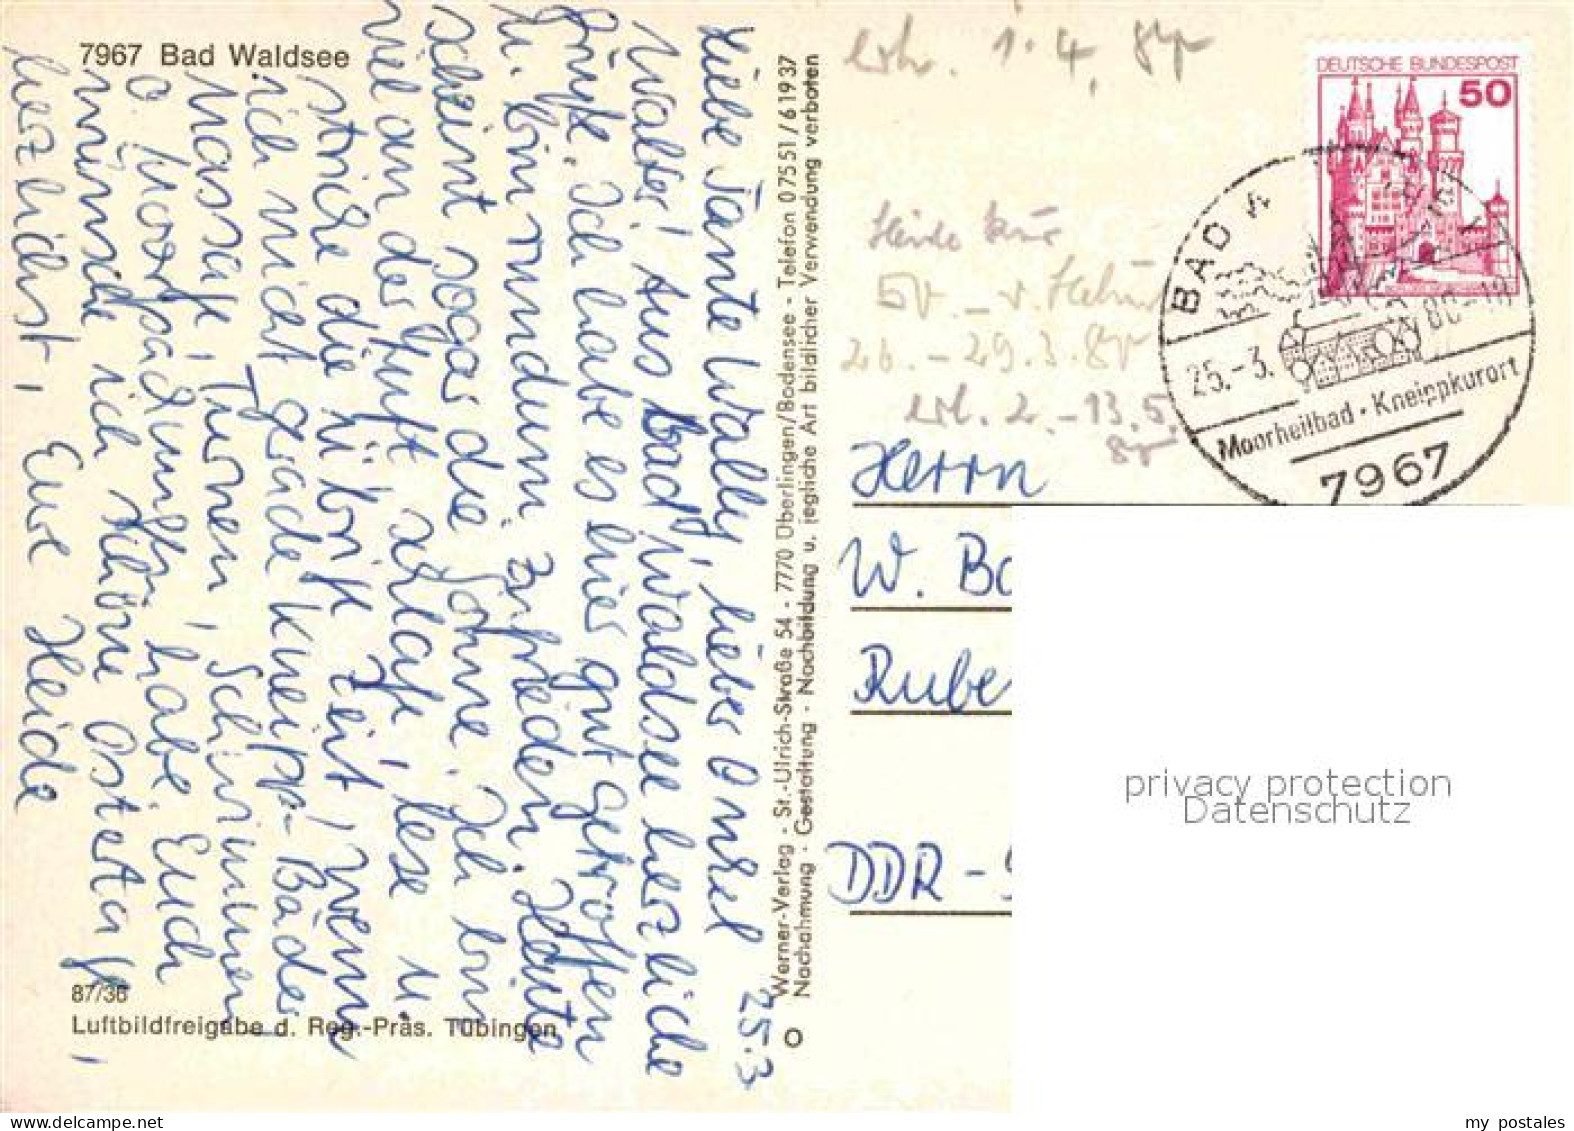 7967 Bad Waldsee
25.3
Liebe Tante Wally, lieber Onkel
Walter! Aus Bad Waldsee herzliche
Grüße. Ich habe es hier gut getroffen
u. bin rundum zufrieden. Heute
scheint sogar die Sonne. Ich bin
viel an der Luft, schlafe, lese u.
stricke die übrige Zeit, wenn
ich nicht gerade Kneipp-Bäder
Massage, Turnen, Schwimmen
o. Moorpackungen habe. Euch
wünsche ich schöne Ostertage,
herzlichst, Eure Heide
87/36
Luftbildfreigabe d. Reg.-Präs. Tübingen
Werner-Verlag · St.-Ulrich-Straße 54 · 7770 Überlingen/Bodensee · Telefon 07551/61937
Nachahmung · Gestaltung · Nachbildung u. jegliche Art bildlicher Verwendung verboten
erh. 1.4.
Heide Kur
26.-29.3.
2.-13.5.
DEUTSCHE BUNDESPOST
50
BAD W
25.-3.
Moorheilbad · Kneippkurort
7967
Herrn
W. Bo
Rube
DDR -
privacy protection
Datenschutz
my postales